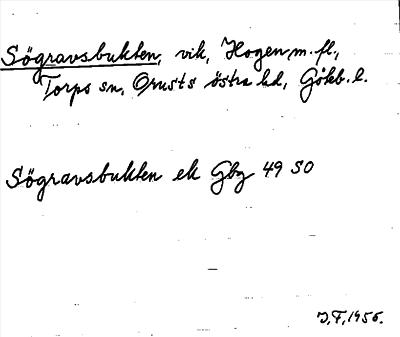 Sögravsbukten, vik, Hogen m. fl.,
Torps sn, Orusts östra hd, Göteb. l.
Sögravsbukten ek Gbg 49 SO
J.F, 1956.